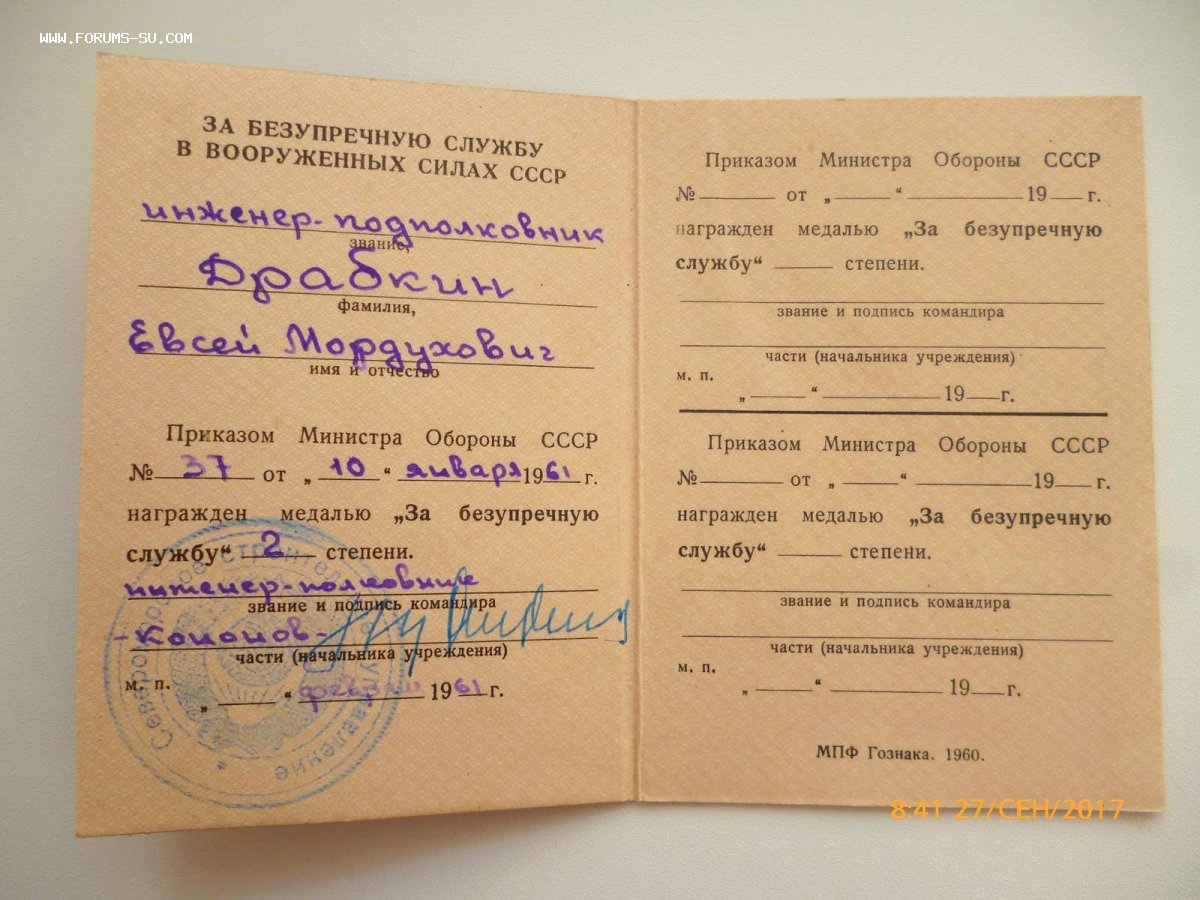 WWW.FORUMS-SU.COM
ЗА БЕЗУПРЕЧНУЮ СЛУЖБУ
В ВООРУЖЕННЫХ СИЛАХ СССР
инженер-подполковник
звание,
Драбкин
фамилия,
Евсей Мордухович
имя и отчество
Приказом Министра Обороны СССР
№ 37 от „ 10 “ января 1961 г.
награжден медалью „За безупречную
службу“ 2 степени.
инженер-полковник
звание и подпись командира
-Кононов-
части (начальника учреждения)
м. п.
„ “ феврал 1961 г.
Северо строительное управление
Приказом Министра Обороны СССР
№ от „ “ 19 г.
награжден медалью „За безупречную
службу“ степени.
звание и подпись командира
части (начальника учреждения)
м. п.
„ “ 19 г.
Приказом Министра Обороны СССР
№ от „ “ 19 г.
награжден медалью „За безупречную
службу“ степени.
звание и подпись командира
части (начальника учреждения)
м. п.
„ “ 19 г.
МПФ Гознака. 1960.
8:41 27/СЕН/2017